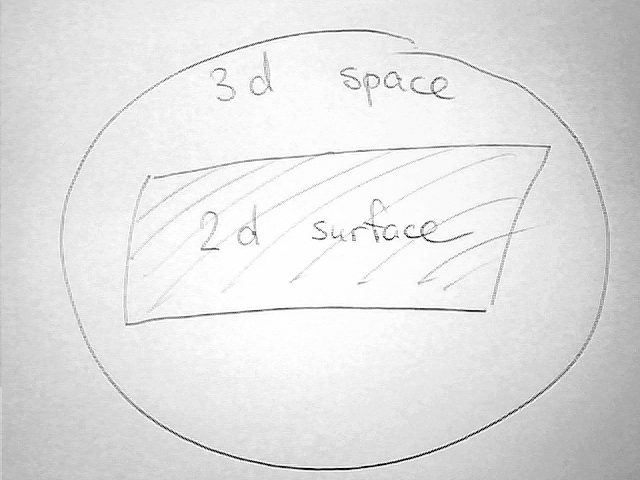 3d space
2d surface